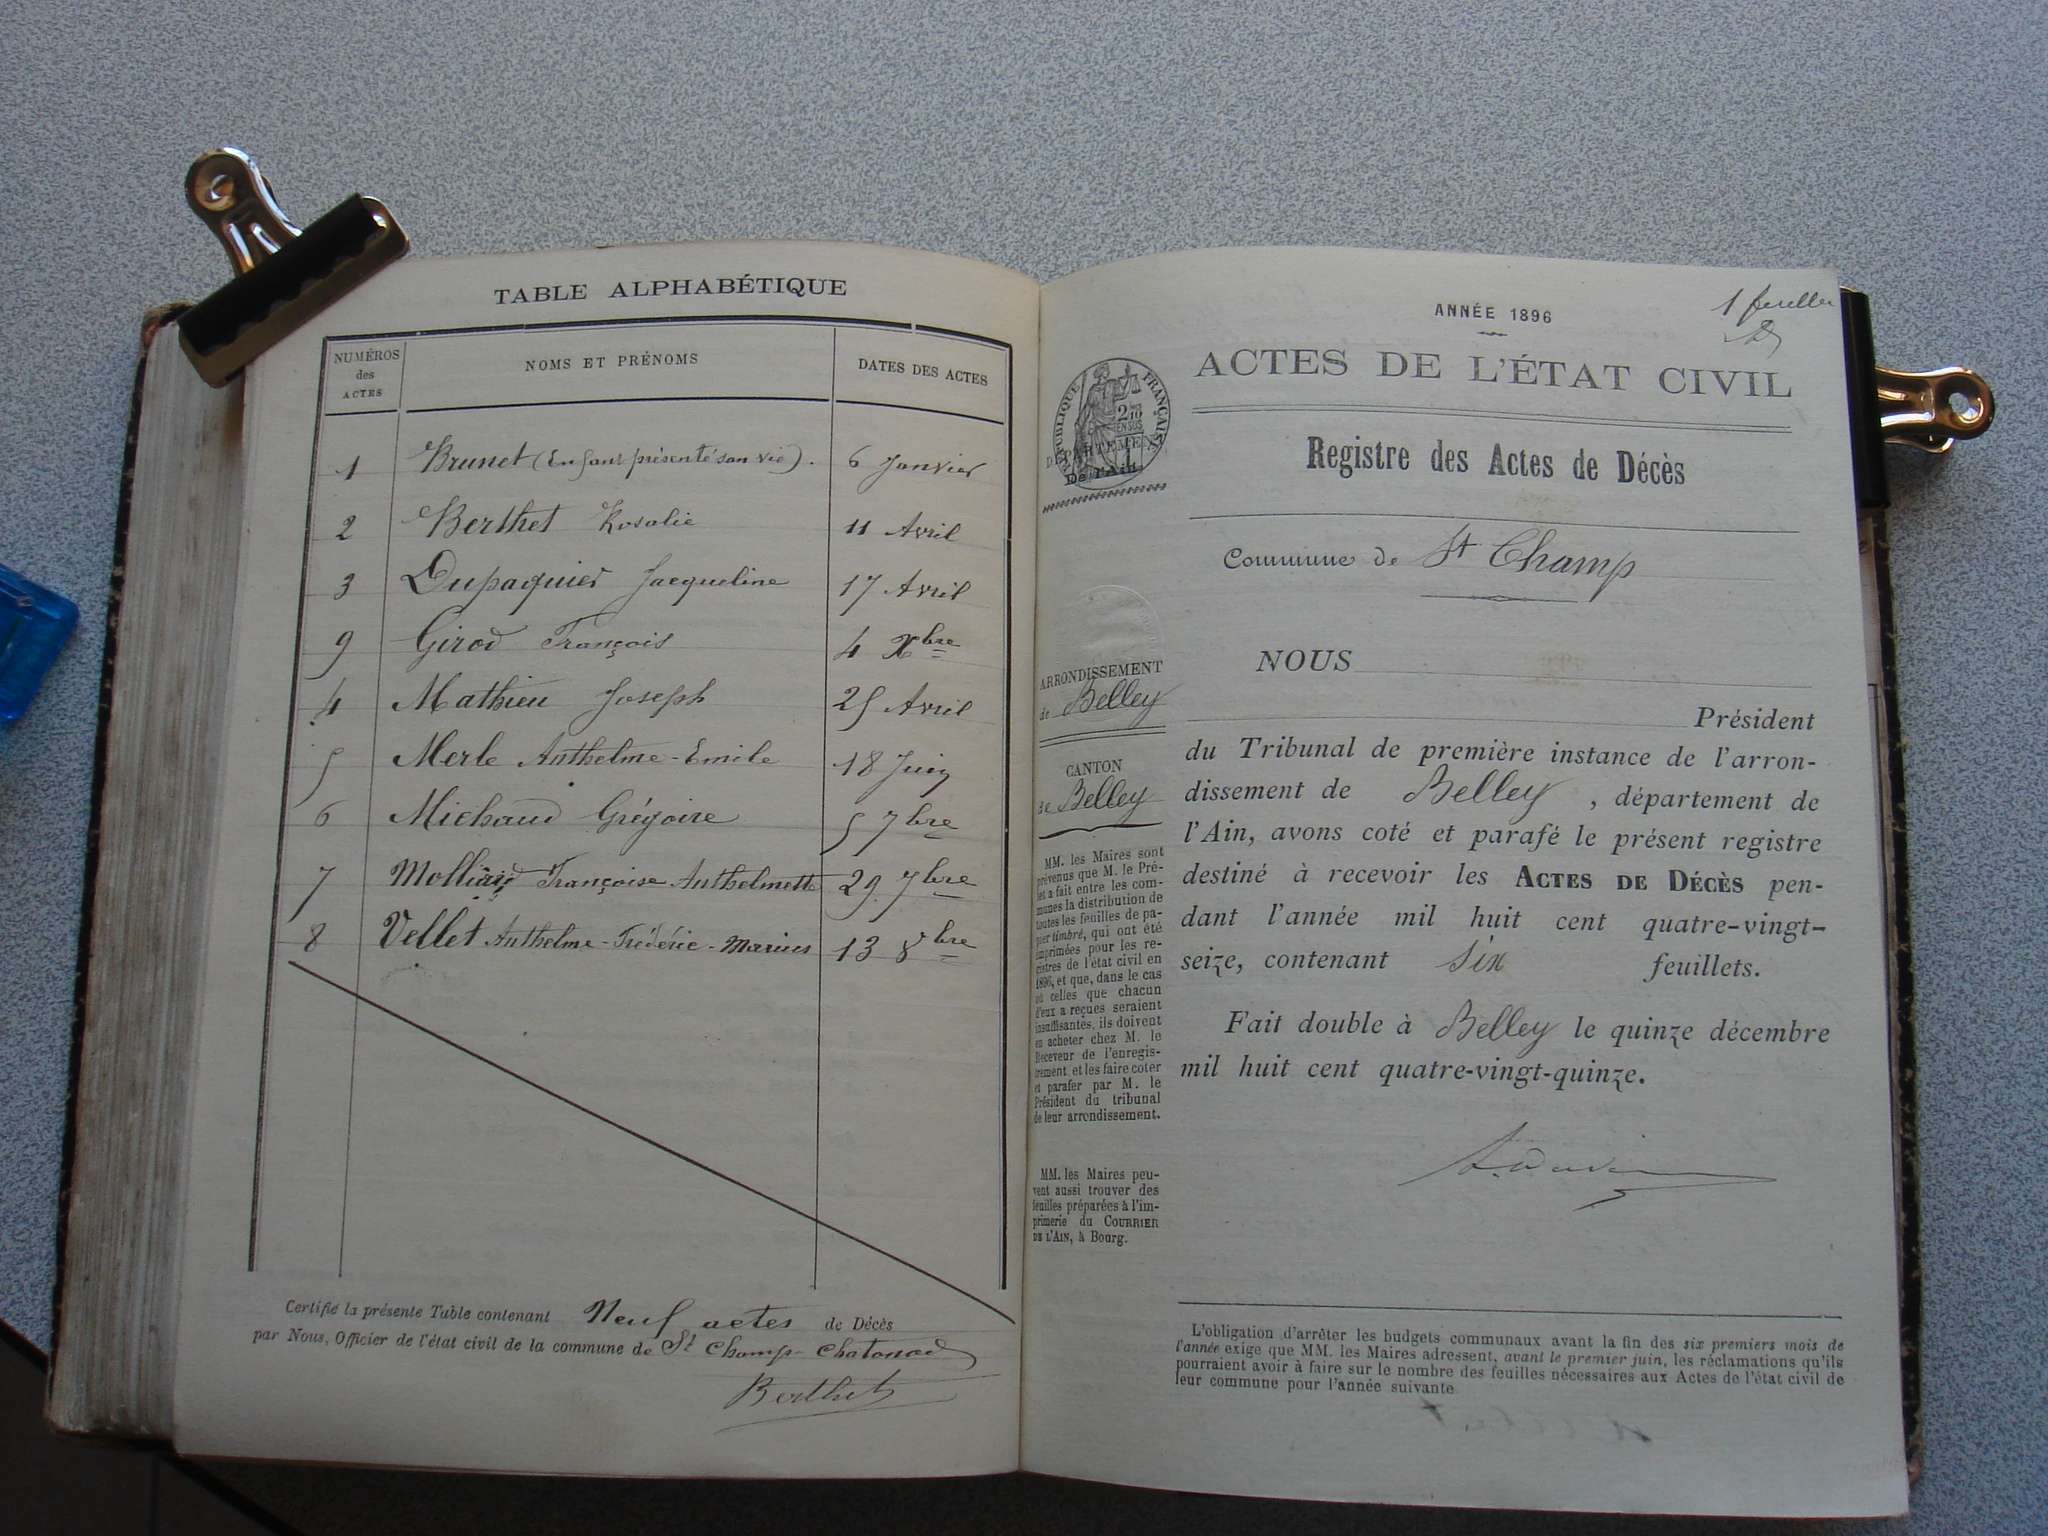 TABLE ALPHABÉTIQUE
NUMÉROS des ACTES NOMS ET PRÉNOMS DATES DES ACTES
1 Brunet (Enfant présenté san vie). 6 Janvier
2 Berthet Rosalie 11 Avril
3 Dupaquier Jacqueline 17 Avril
9 Girod François 4 Xbre
4 Mathieu Joseph 25 Avril
5 Merle Anthelme-Emile 18 Juin
6 Michaud Grégoire 5 7bre
7 Molliard Françoise Anthelmette 29 7bre
8 Vellet Anthelme-Frédéric-Marius 13 8bre
Certifié la présente Table contenant Neuf actes de Décès
par Nous, Officier de l'état civil de la commune de St Champ-Chatonod
Berthet
1 feuillet
ANNÉE 1896
ACTES DE L'ÉTAT CIVIL
RÉPUBLIQUE FRANÇAISE
2
DÉPARTEMENT
De l'Ain
Registre des Actes de Décès
Commune de St Champ
ARRONDISSEMENT
de Belley
CANTON
de Belley
MM. les Maires sont
prévenus que M. le Pré-
fet a fait entre les com-
munes la distribution de
toutes les feuilles de pa-
pier timbré, qui ont été
imprimées pour les re-
gistres de l'état civil en
1896, et que, dans le cas
où celles que chacun
d'eux a reçues seraient
insuffisantes, ils doivent
en acheter chez M. le
Receveur de l'enregis-
trement, et les faire coter
et parafer par M. le
Président du tribunal
de leur arrondissement.
MM. les Maires peu-
vent aussi trouver des
feuilles préparées à l'im-
primerie du COURRIER
DE L'AIN, à Bourg.
NOUS
Président
du Tribunal de première instance de l'arron-
dissement de Belley, département de
l'Ain, avons coté et parafé le présent registre
destiné à recevoir les ACTES DE DÉCÈS pen-
dant l'année mil huit cent quatre-vingt-
seize, contenant Six feuillets.
Fait double à Belley le quinze décembre
mil huit cent quatre-vingt-quinze.
L'obligation d'arrêter les budgets communaux avant la fin des six premiers mois de
l'année exige que MM. les Maires adressent, avant le premier juin, les réclamations qu'ils
pourraient avoir à faire sur le nombre des feuilles nécessaires aux Actes de l'état civil de
leur commune pour l'année suivante